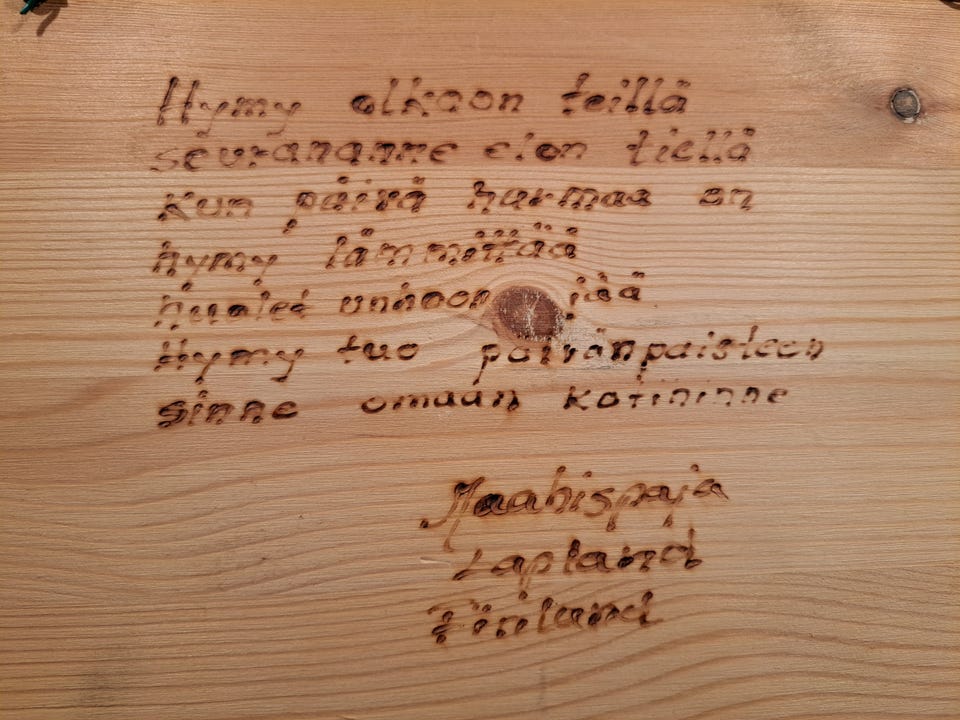 Hymy olkoon teillä
seurananne elon tiellä
Kun päivä harmaa on
hymy lämmittää
huolet unhoon jää
Hymy tuo päivänpaisteen
sinne omaan kotihinne
Maahispaja
Lapland
Finland